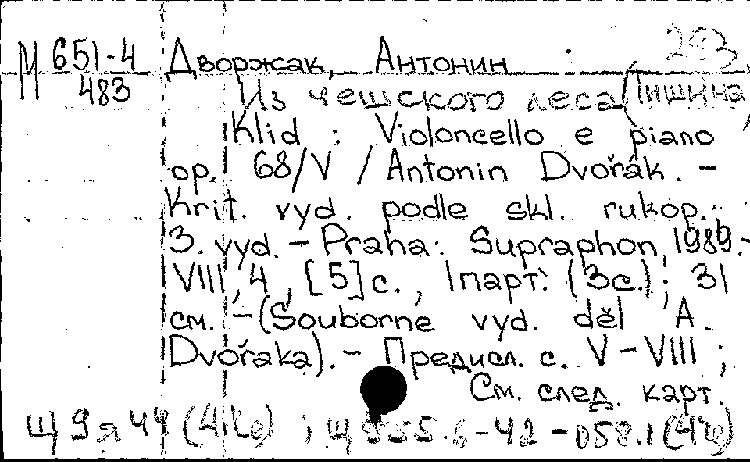 М 651-4 Дворжак, Антонин 293
483 Из чешского леса (Тишина)
Klid : Violoncello e piano
op. 68/V / Antonin Dvořák. -
Krit. vyd. podle skl. rukop. -
3. vyd. - Praha: Supraphon, 1989. -
VIII, 4, [5] с., 1 парт. (3 с.); 31
см. - (Souborne vyd. děl A.
Dvořaka). - Предисл. с. V-VIII;
См. след. карт.
Щ9я44(4Че) ; Щ955.6-42-058.1(4Че)